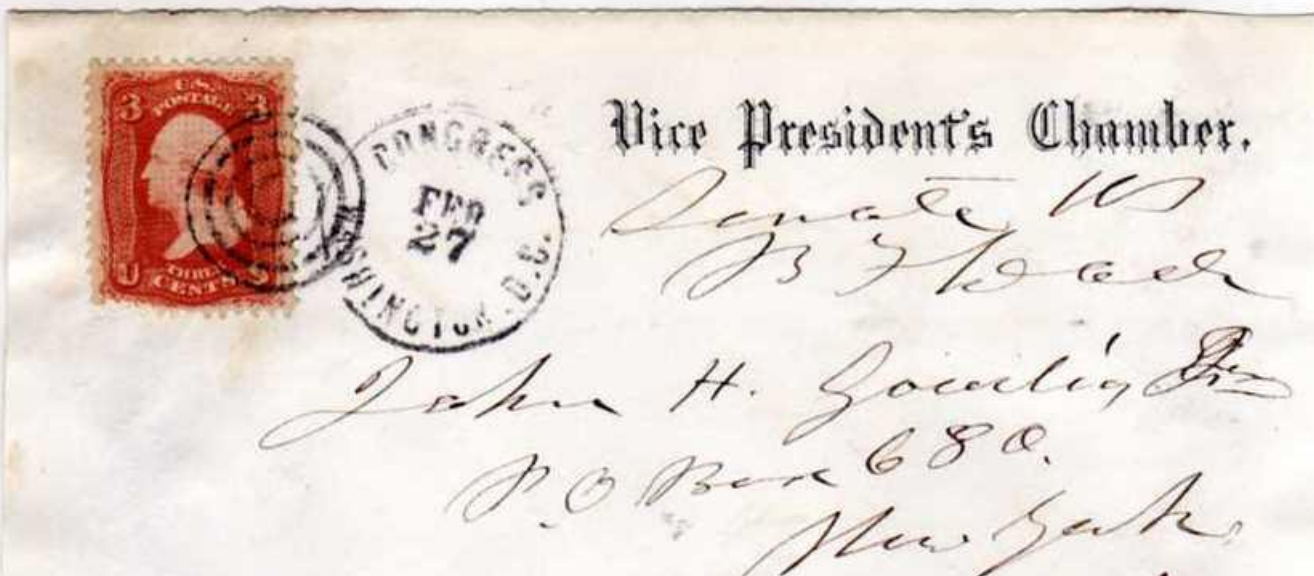 U.S.
POSTAGE
3 3
THREE
U CENTS S
CONGRESS
FEB
27
WASHINGTON D.C.
Vice President's Chamber.
Senate US
B F Wade
John H.
P.O Box 680.
New York